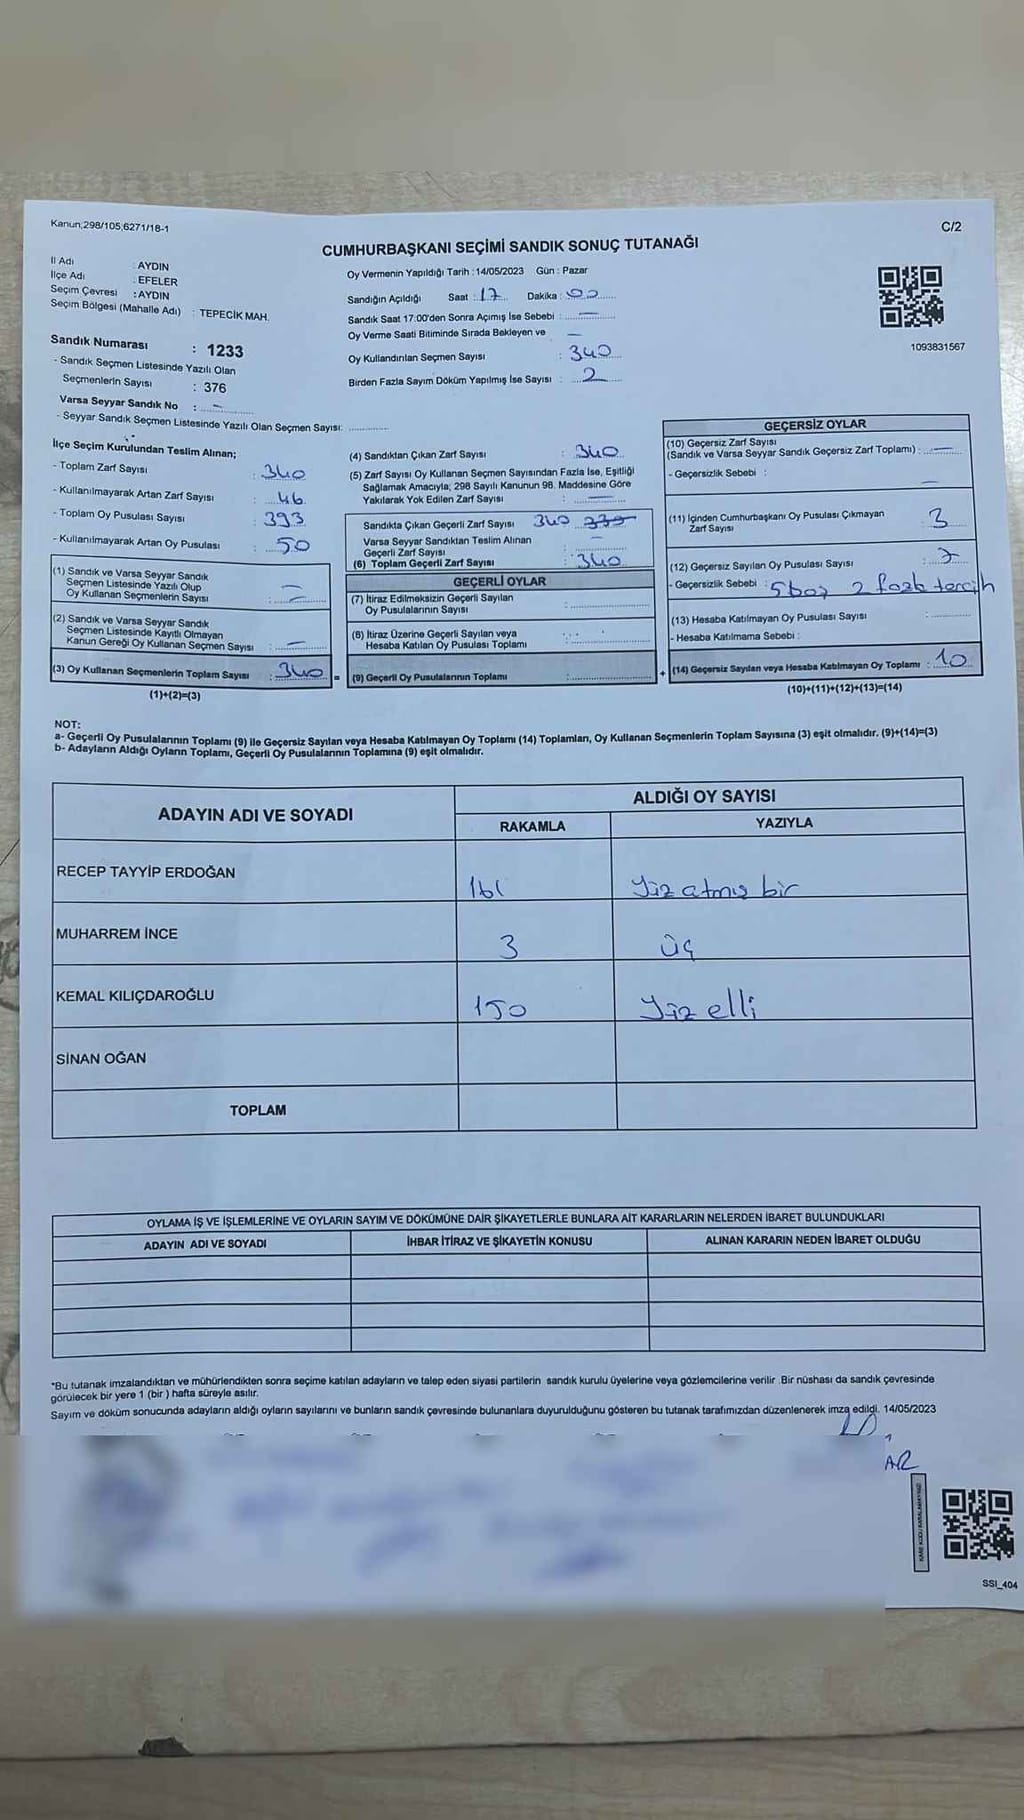 Kanun;298/105;6271/18-1
C/2
CUMHURBAŞKANI SEÇİMİ SANDIK SONUÇ TUTANAĞI
İl Adı : AYDIN
İlçe Adı : EFELER
Seçim Çevresi : AYDIN
Seçim Bölgesi (Mahalle Adı) : TEPECİK MAH.
Oy Vermenin Yapıldığı Tarih : 14/05/2023 Gün : Pazar
Sandığın Açıldığı Saat : 17 Dakika : 00
Sandık Saat 17:00'den Sonra Açımış İse Sebebi : —
Oy Verme Saati Bitiminde Sırada Bekleyen ve —
Oy Kullandırılan Seçmen Sayısı : 340
Birden Fazla Sayım Döküm Yapılmış İse Sayısı : 2
1093831567
Sandık Numarası : 1233
- Sandık Seçmen Listesinde Yazılı Olan
Seçmenlerin Sayısı : 376
Varsa Seyyar Sandık No : —
- Seyyar Sandık Seçmen Listesinde Yazılı Olan Seçmen Sayısı:
İlçe Seçim Kurulundan Teslim Alınan;
- Toplam Zarf Sayısı : 340
- Kullanılmayarak Artan Zarf Sayısı : 46
- Toplam Oy Pusulası Sayısı : 393
- Kullanılmayarak Artan Oy Pusulası : 50
(1) Sandık ve Varsa Seyyar Sandık
Seçmen Listesinde Yazılı Olup
Oy Kullanan Seçmenlerin Sayısı : —
(2) Sandık ve Varsa Seyyar Sandık
Seçmen Listesinde Kayıtlı Olmayan
Kanun Gereği Oy Kullanan Seçmen Sayısı : —
(3) Oy Kullanan Seçmenlerin Toplam Sayısı : 340
(1)+(2)=(3)
(4) Sandıktan Çıkan Zarf Sayısı : 340
(5) Zarf Sayısı Oy Kullanan Seçmen Sayısından Fazla İse, Eşitliği
Sağlamak Amacıyla; 298 Sayılı Kanunun 98. Maddesine Göre
Yakılarak Yok Edilen Zarf Sayısı : —
Sandıkta Çıkan Geçerli Zarf Sayısı 340 339
Varsa Seyyar Sandıktan Teslim Alınan
Geçerli Zarf Sayısı : —
(6) Toplam Geçerli Zarf Sayısı : 340
GEÇERLİ OYLAR
(7) İtiraz Edilmeksizin Geçerli Sayılan
Oy Pusulalarının Sayısı :
(8) İtiraz Üzerine Geçerli Sayılan veya
Hesaba Katılan Oy Pusulası Toplamı :
= (9) Geçerli Oy Pusulalarının Toplamı :
GEÇERSİZ OYLAR
(10) Geçersiz Zarf Sayısı
(Sandık ve Varsa Seyyar Sandık Geçersiz Zarf Toplamı) : —
- Geçersizlik Sebebi : —
(11) İçinden Cumhurbaşkanı Oy Pusulası Çıkmayan
Zarf Sayısı : 3
(12) Geçersiz Sayılan Oy Pusulası Sayısı : 7
- Geçersizlik Sebebi : 5 boş 2 fazla tercih
(13) Hesaba Katılmayan Oy Pusulası Sayısı :
- Hesaba Katılmama Sebebi :
+ (14) Geçersiz Sayılan veya Hesaba Katılmayan Oy Toplamı : 10
(10)+(11)+(12)+(13)=(14)
NOT:
a- Geçerli Oy Pusulalarının Toplamı (9) ile Geçersiz Sayılan veya Hesaba Katılmayan Oy Toplamı (14) Toplamları, Oy Kullanan Seçmenlerin Toplam Sayısına (3) eşit olmalıdır. (9)+(14)=(3)
b- Adayların Aldığı Oyların Toplamı, Geçerli Oy Pusulalarının Toplamına (9) eşit olmalıdır.
ADAYIN ADI VE SOYADI ALDIĞI OY SAYISI
RAKAMLA YAZIYLA
RECEP TAYYİP ERDOĞAN 161 Yüz atmış bir
MUHARREM İNCE 3 üç
KEMAL KILIÇDAROĞLU 150 Yüz elli
SİNAN OĞAN
TOPLAM
OYLAMA İŞ VE İŞLEMLERİNE VE OYLARIN SAYIM VE DÖKÜMÜNE DAİR ŞİKAYETLERLE BUNLARA AİT KARARLARIN NELERDEN İBARET BULUNDUKLARI
ADAYIN ADI VE SOYADI İHBAR İTİRAZ VE ŞİKAYETİN KONUSU ALINAN KARARIN NEDEN İBARET OLDUĞU
*Bu tutanak imzalandıktan ve mühürlendikten sonra seçime katılan adayların ve talep eden siyasi partilerin sandık kurulu üyelerine veya gözlemcilerine verilir. Bir nüshası da sandık çevresinde
görülecek bir yere 1 (bir ) hafta süreyle asılır.
Sayım ve döküm sonucunda adayların aldığı oyların sayılarını ve bunların sandık çevresinde bulunanlara duyurulduğunu gösteren bu tutanak tarafımızdan düzenlenerek imza edildi. 14/05/2023
AR
SSI_404